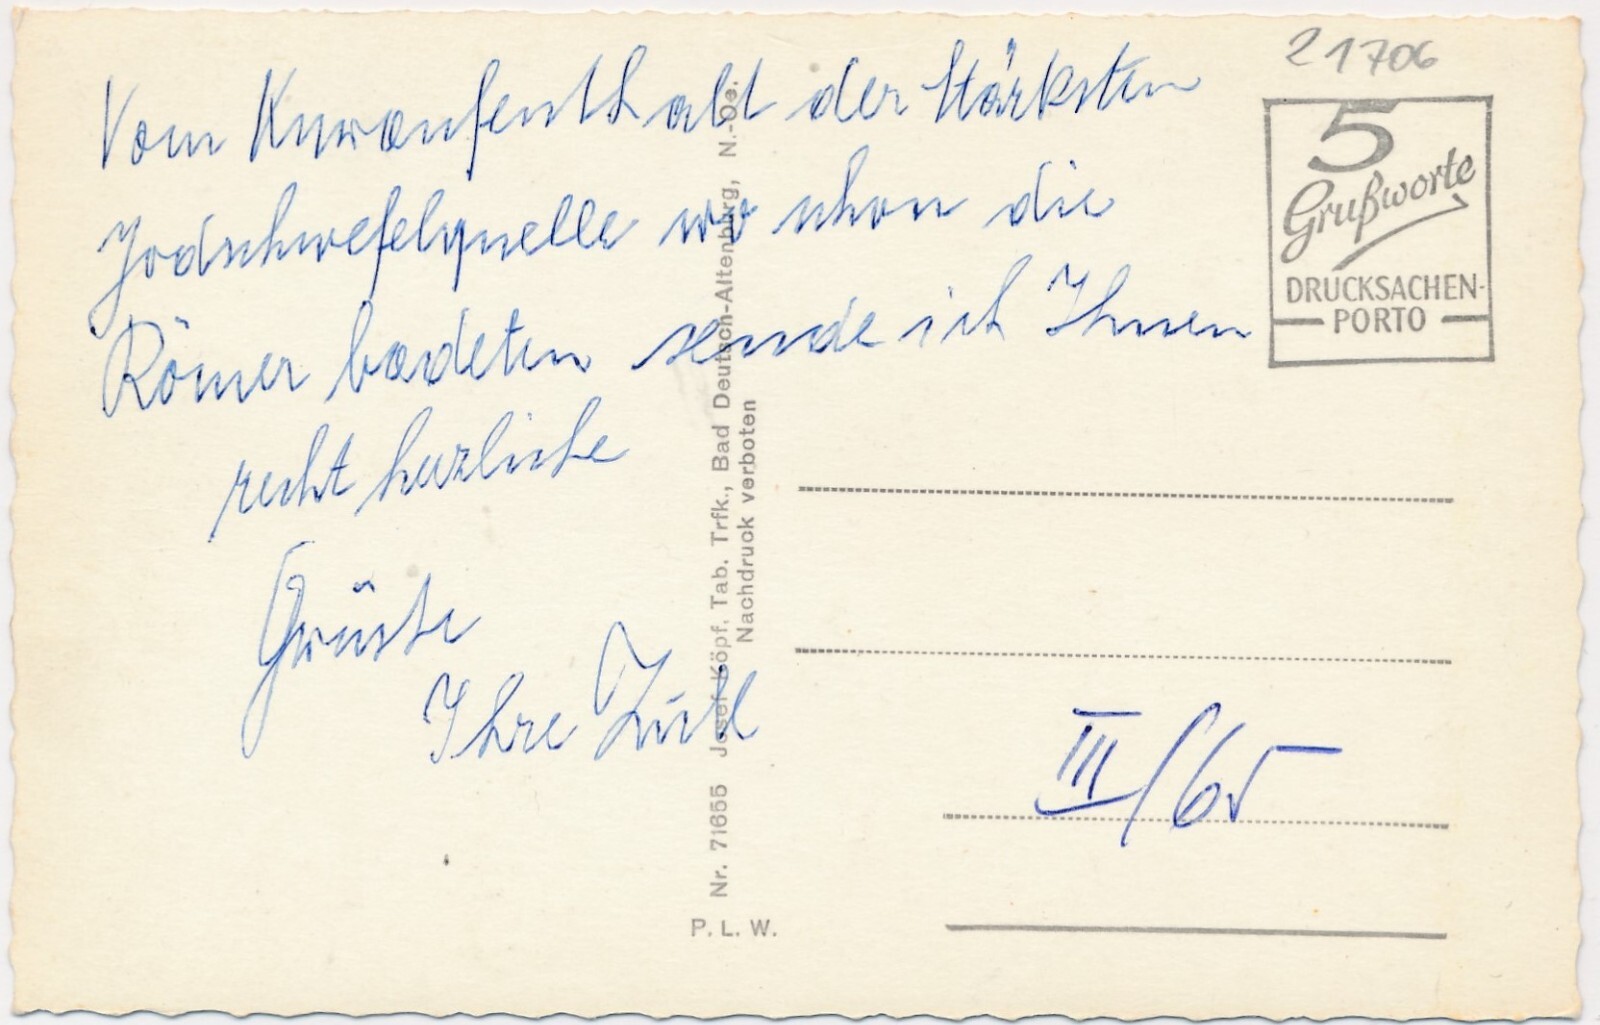 Vom Kuraufenthalt der stärksten
Jodschwefelquelle wo schon die
Römer badeten sende ich Ihnen
recht herzliche
Grüße
Ihre
21706
5
Grußworte
DRUCKSACHEN-
PORTO
III/65
Nr. 71655 Josef Köpf, Tab. Trfk., Bad Deutsch-Altenburg, N.-Oe.
Nachdruck verboten
P. L. W.